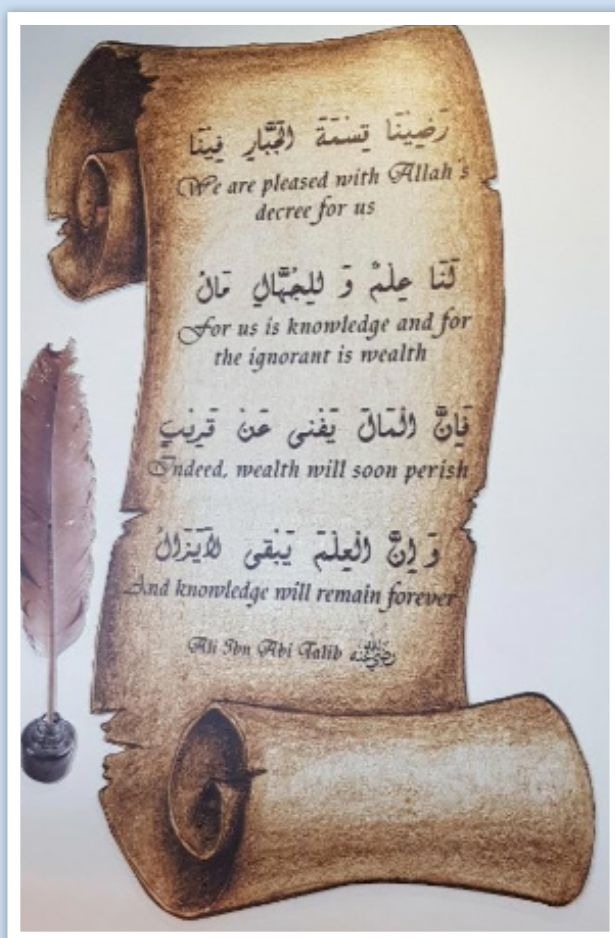 رَضِينَا قِسْمَةَ الْجَبَّارِ فِينَا
We are pleased with Allah's
decree for us
لَنَا عِلْمٌ وَ لِلْجُهَّالِ مَالُ
For us is knowledge and for
the ignorant is wealth
فَإِنَّ الْمَالَ يَفْنَى عَنْ قَرِيْبٍ
Indeed, wealth will soon perish
وَ إِنَّ الْعِلْمَ يَبْقَى لَايَزَالُ
And knowledge will remain forever
Ali Ibn Abi Talib رضي الله عنه